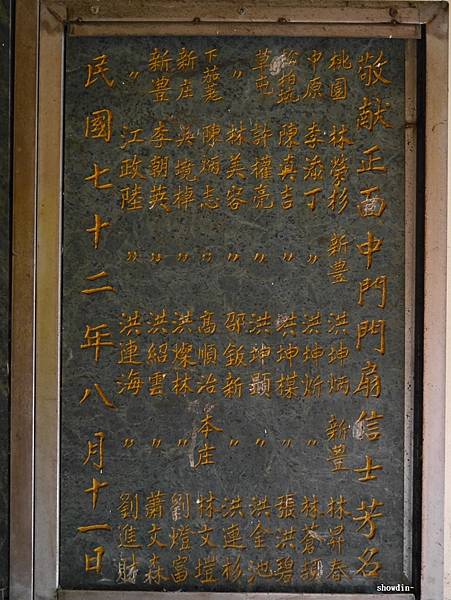 敬献正面中門門扇信士芳名
桃園 林榮杉 新豊 洪坤炳 新豊 林昇春
中原 李添丁 〃 洪坤炘 林蒼
陳真吉 〃 洪坤樣 張洪碧
草屯 許權亮 〃 洪坤顕 〃 洪金池
〃 林美容 〃 邵鈑新 〃 洪連杉
下茄荖 陳炳志 高順治 本庄 林文塏
新庄 吳境棹 〃 洪燦林 〃 劉燈富
新豊 李朝英 〃 洪紹雲 〃 蕭文森
〃 江政陸 〃 洪連海 〃 劉進財
民國七十二年八月十一日
showdin-